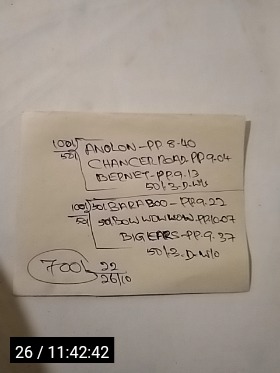 100/50 ANOLON-PP 8-40
CHANCER ROAD-PP 9.04
BERNET-PP.9.13
50/3-D-W/o
100/50 50/BARABOO-PP.9.22
50/BOW WOW WOW-PP10.07
BIG EARS-PP.9.37
50/3-D-W/o
700/ 22
26/10
26 / 11:42:42